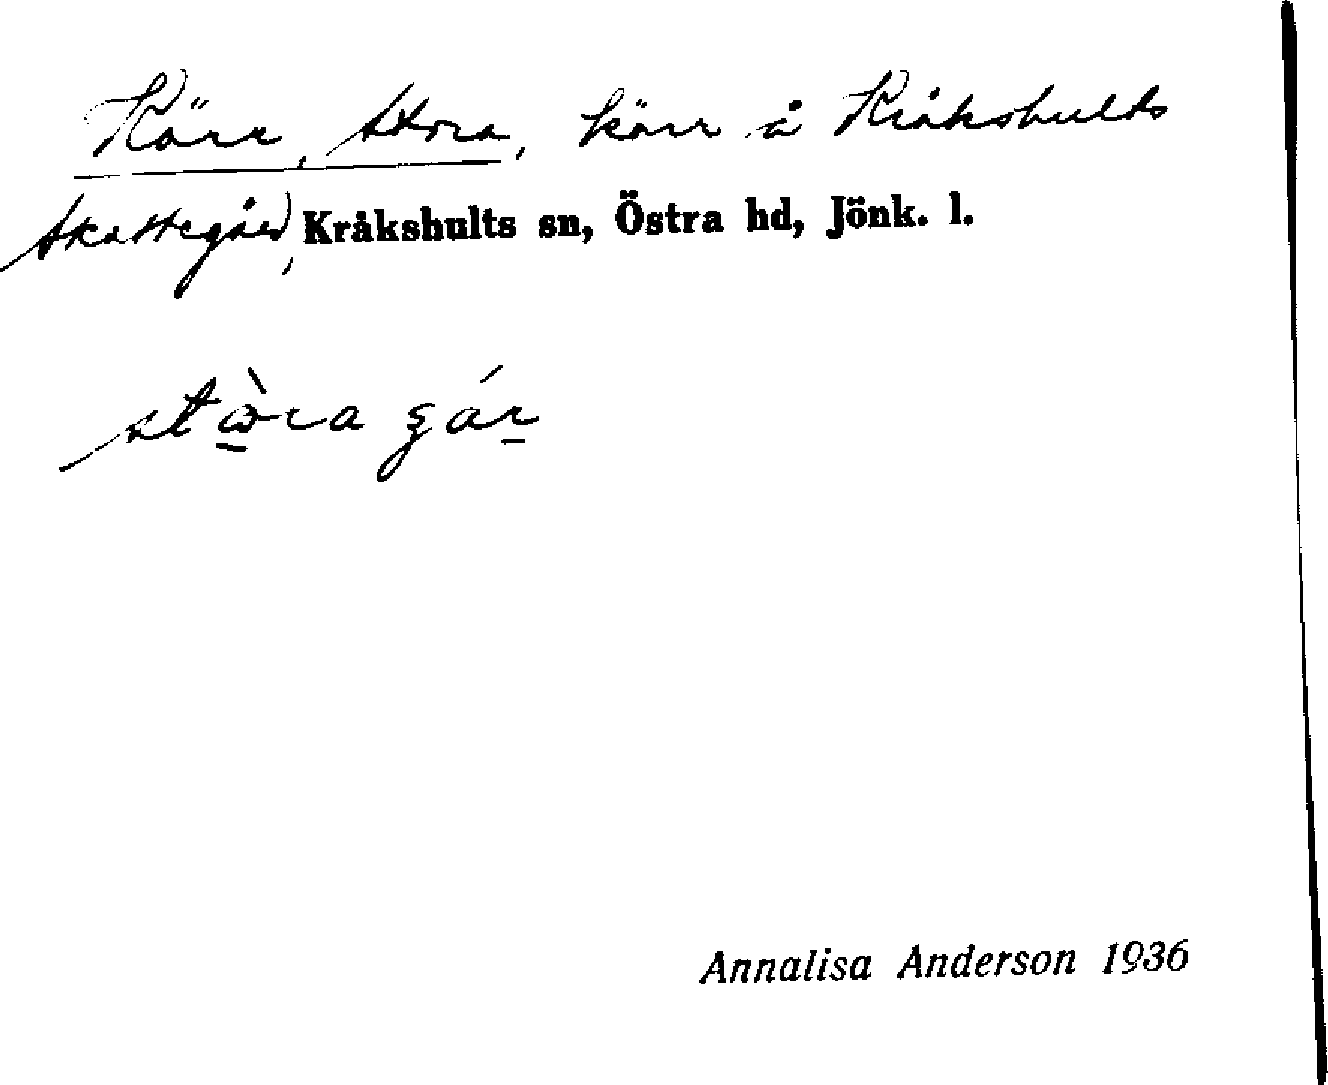 Kärr, Stora, kärr å Kråkshults
Skattegård, Kråkshults sn, Östra hd, Jönk. l.
Annalisa Anderson 1936